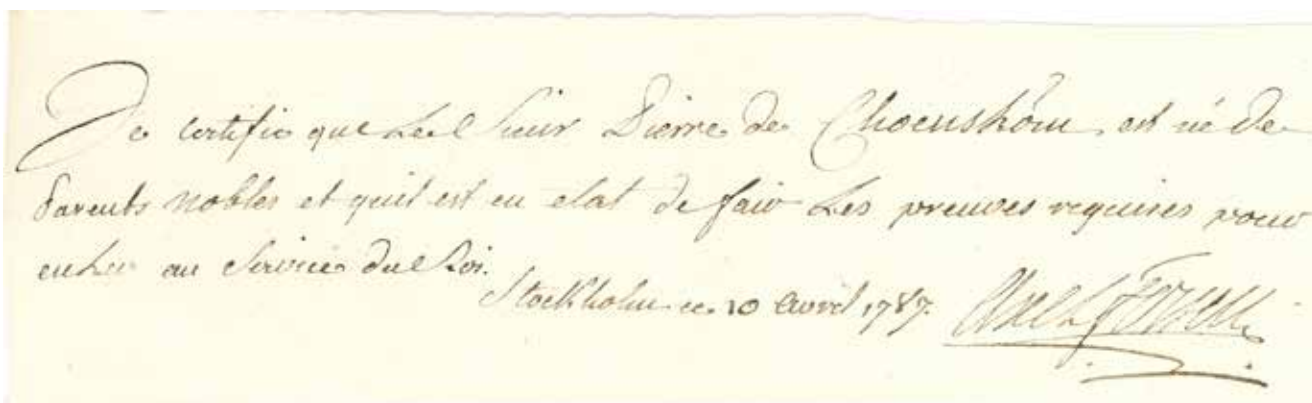 Je certifie que Le Sieur Pierre de est né de
Parents nobles et quil est en etat de faire Les preuves requises pour
entrer au Service du Roi.
Stockholm ce 10 Avril 1787.